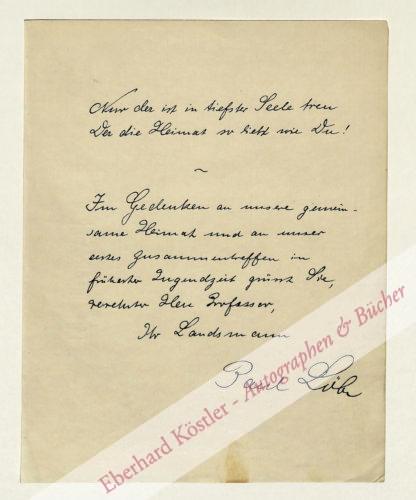 Nur der ist in tiefster Seele treu
Der die Heimat so liebt wie Du!
~
Im Gedenken an unsere gemein-
same Heimat und an unser
erstes Zusammentreffen in
frühester Jugendzeit grüsst Sie,
verehrter Herr Professor,
Ihr Landsmann
Paul Löbe
Eberhard Köstler - Autographen & Bücher